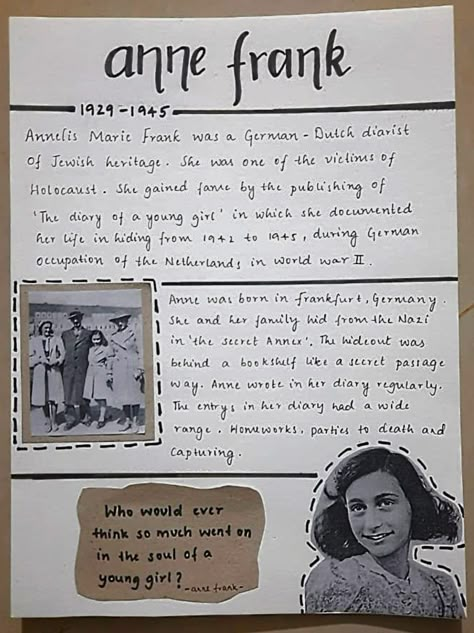 anne frank
1929-1945
Annelis Marie Frank was a German-Dutch diarist
of Jewish heritage. She was one of the victims of
Holocaust. She gained fame by the publishing of
'The diary of a young girl' in which she documented
her life in hiding from 1942 to 1945, during German
occupation of the Netherlands in world war II.
Anne was born in Frankfurt, Germany.
She and her family hid from the Nazi
in 'the secret Annex'. The hideout was
behind a bookshelf like a secret passage
way. Anne wrote in her diary regularly.
The entrys in her diary had a wide
range. Homeworks, parties to death and
capturing.
Who would ever
think so much went on
in the soul of a
young girl?
-anne frank-